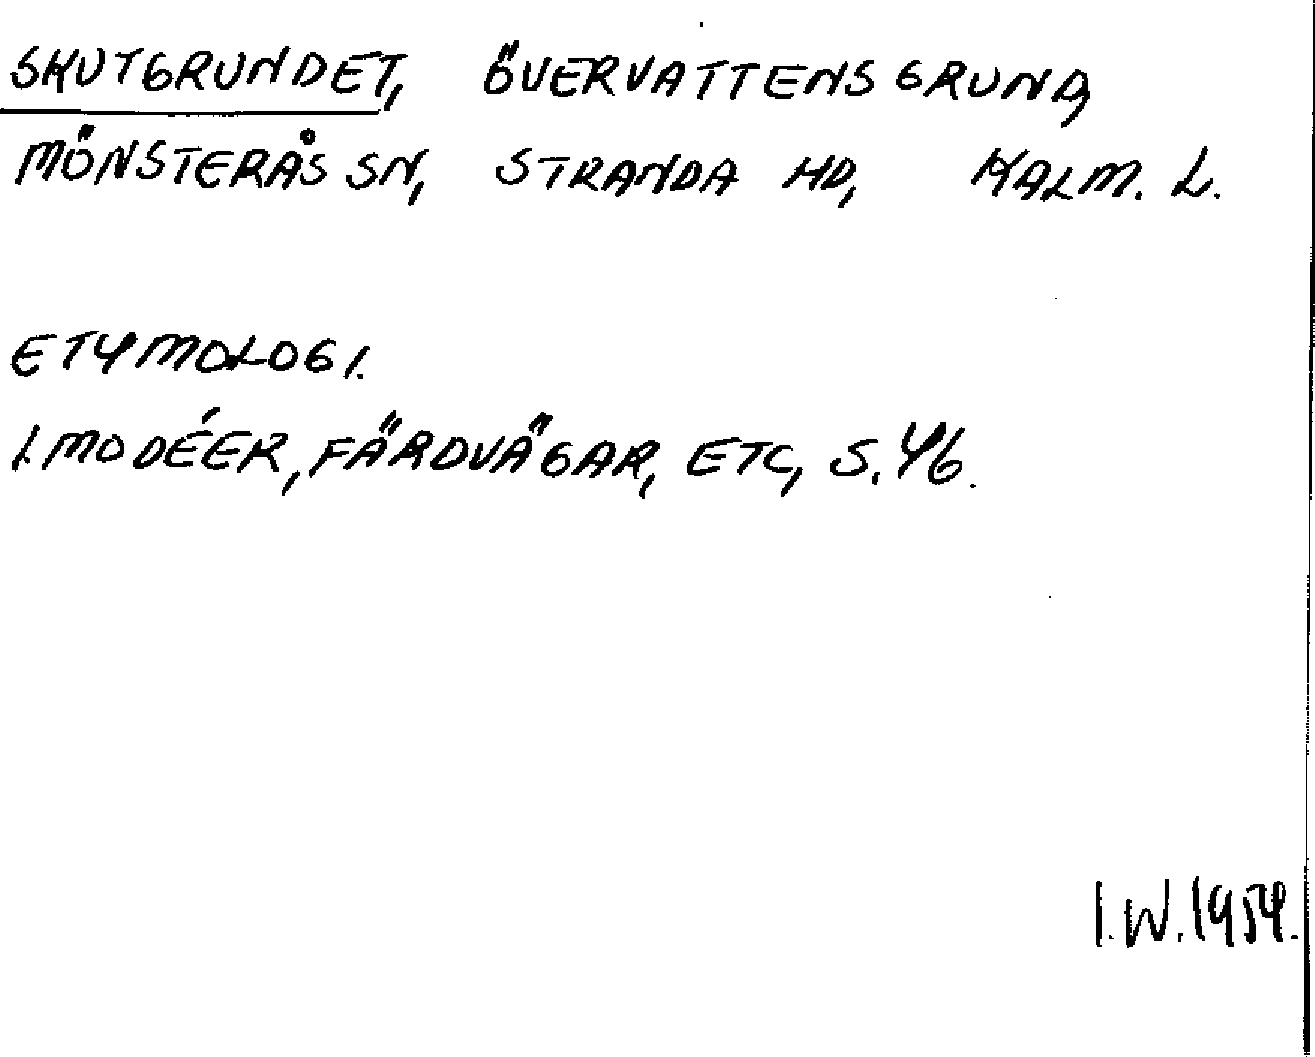 SKUTGRUNDET, ÖVERVATTENSGRUND,
MÖNSTERÅS SN, STRANDA HD, KALM. L.
ETYMOLOGI.
I. MODÉER, FÄRDVÄGAR, ETC, S. 46.
I.W. 1954.